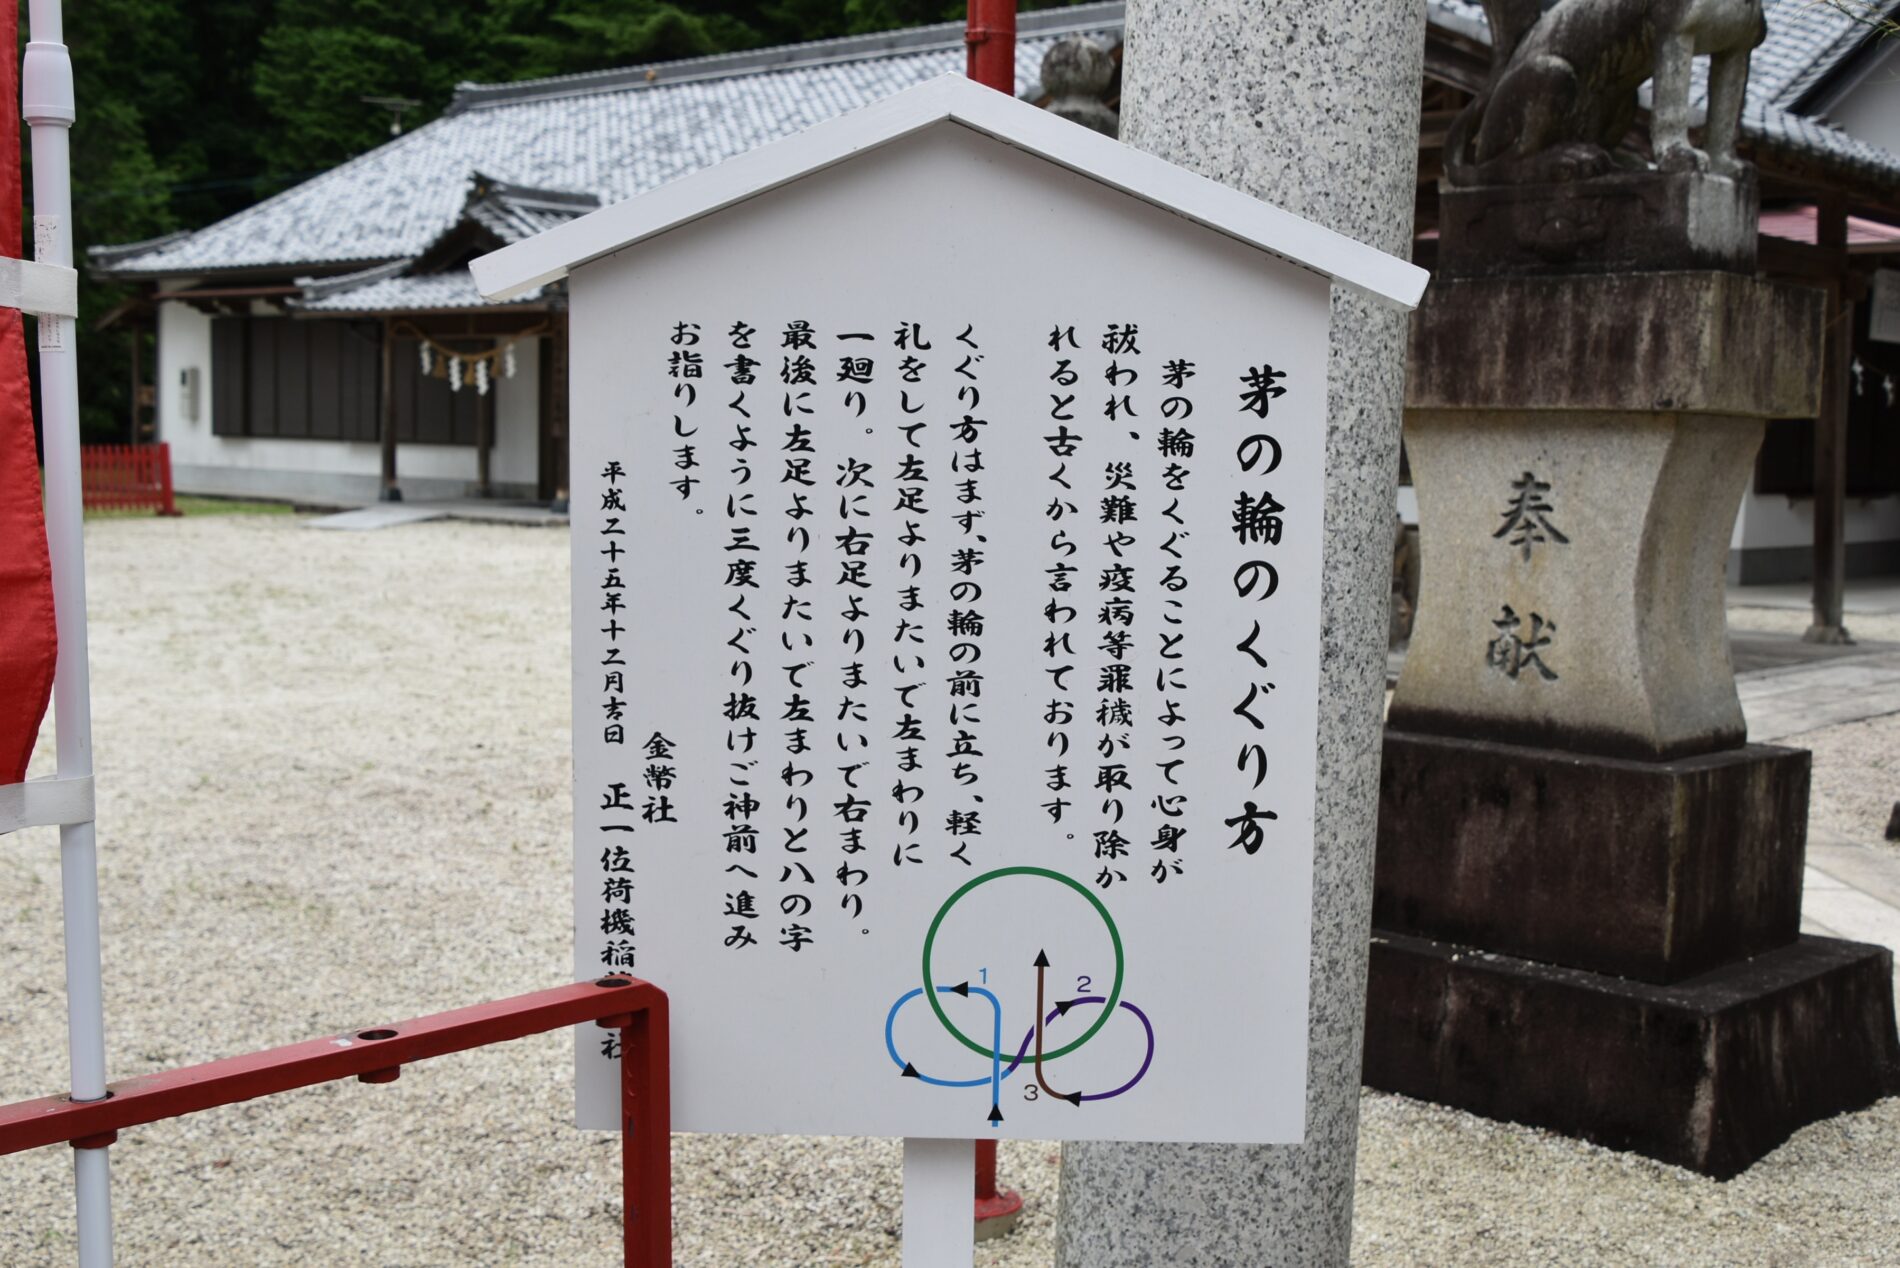 茅の輪のくぐり方
茅の輪をくぐることによって心身が
祓われ、災難や疫病等罪穢が取り除か
れると古くから言われております。
くぐり方はまず、茅の輪の前に立ち、軽く
礼をして左足よりまたいで左まわりに
一廻り。次に右足よりまたいで右まわり。
最後に左足よりまたいで左まわりと八の字
を書くように三度くぐり抜けご神前へ進み
お詣りします。
金幣社
平成二十五年十二月吉日 正一位荷機稲 社
1
2
3
奉献